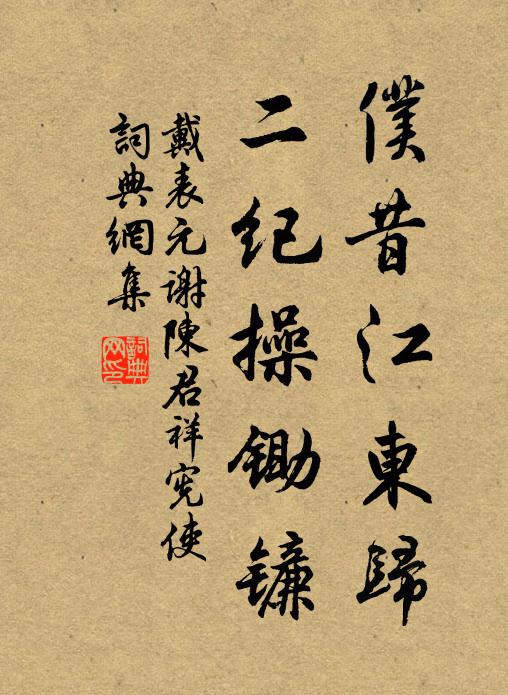 僕昔江東歸
二紀操鋤鐮
戴表元謝陳君祥憲使
詞典網集
詞典网印